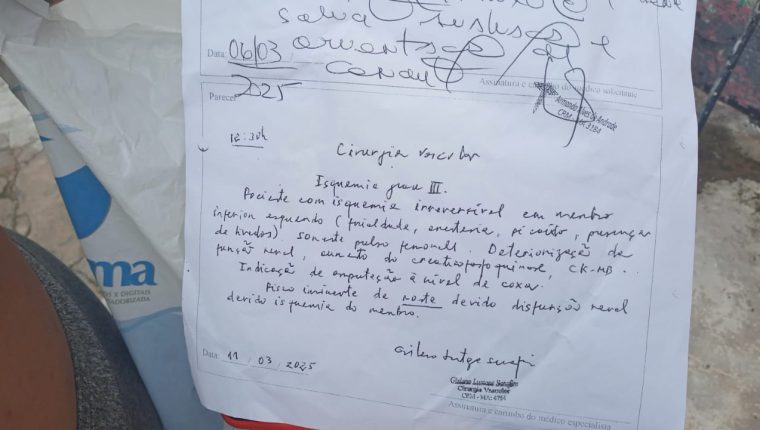 salva
Data: 06/03
2025
Assinatura e carimbo do médico solicitante
Armando Alves de Andrade
Parecer
12:30h
Cirurgia vascular
Isquemia grau III.
Paciente com isquemia irreversível em membro
inferior esquerdo (frialdade, anestesia, pé caído, presença
de livedos). Somente pulso femoral. Deteriorização da
função renal, aumento do creatinofosfoquinose, CK-MB.
Indicação de amputação à nível de coxa.
Risco iminente de morte devido disfunção renal
devido isquemia do membro.
ma
S X E DIGITAIS
ADORIZADA
Data: 11 / 03 / 2025
Cirurgia Vascular
CRM - MA: 4784
Assinatura e carimbo do médico especialista